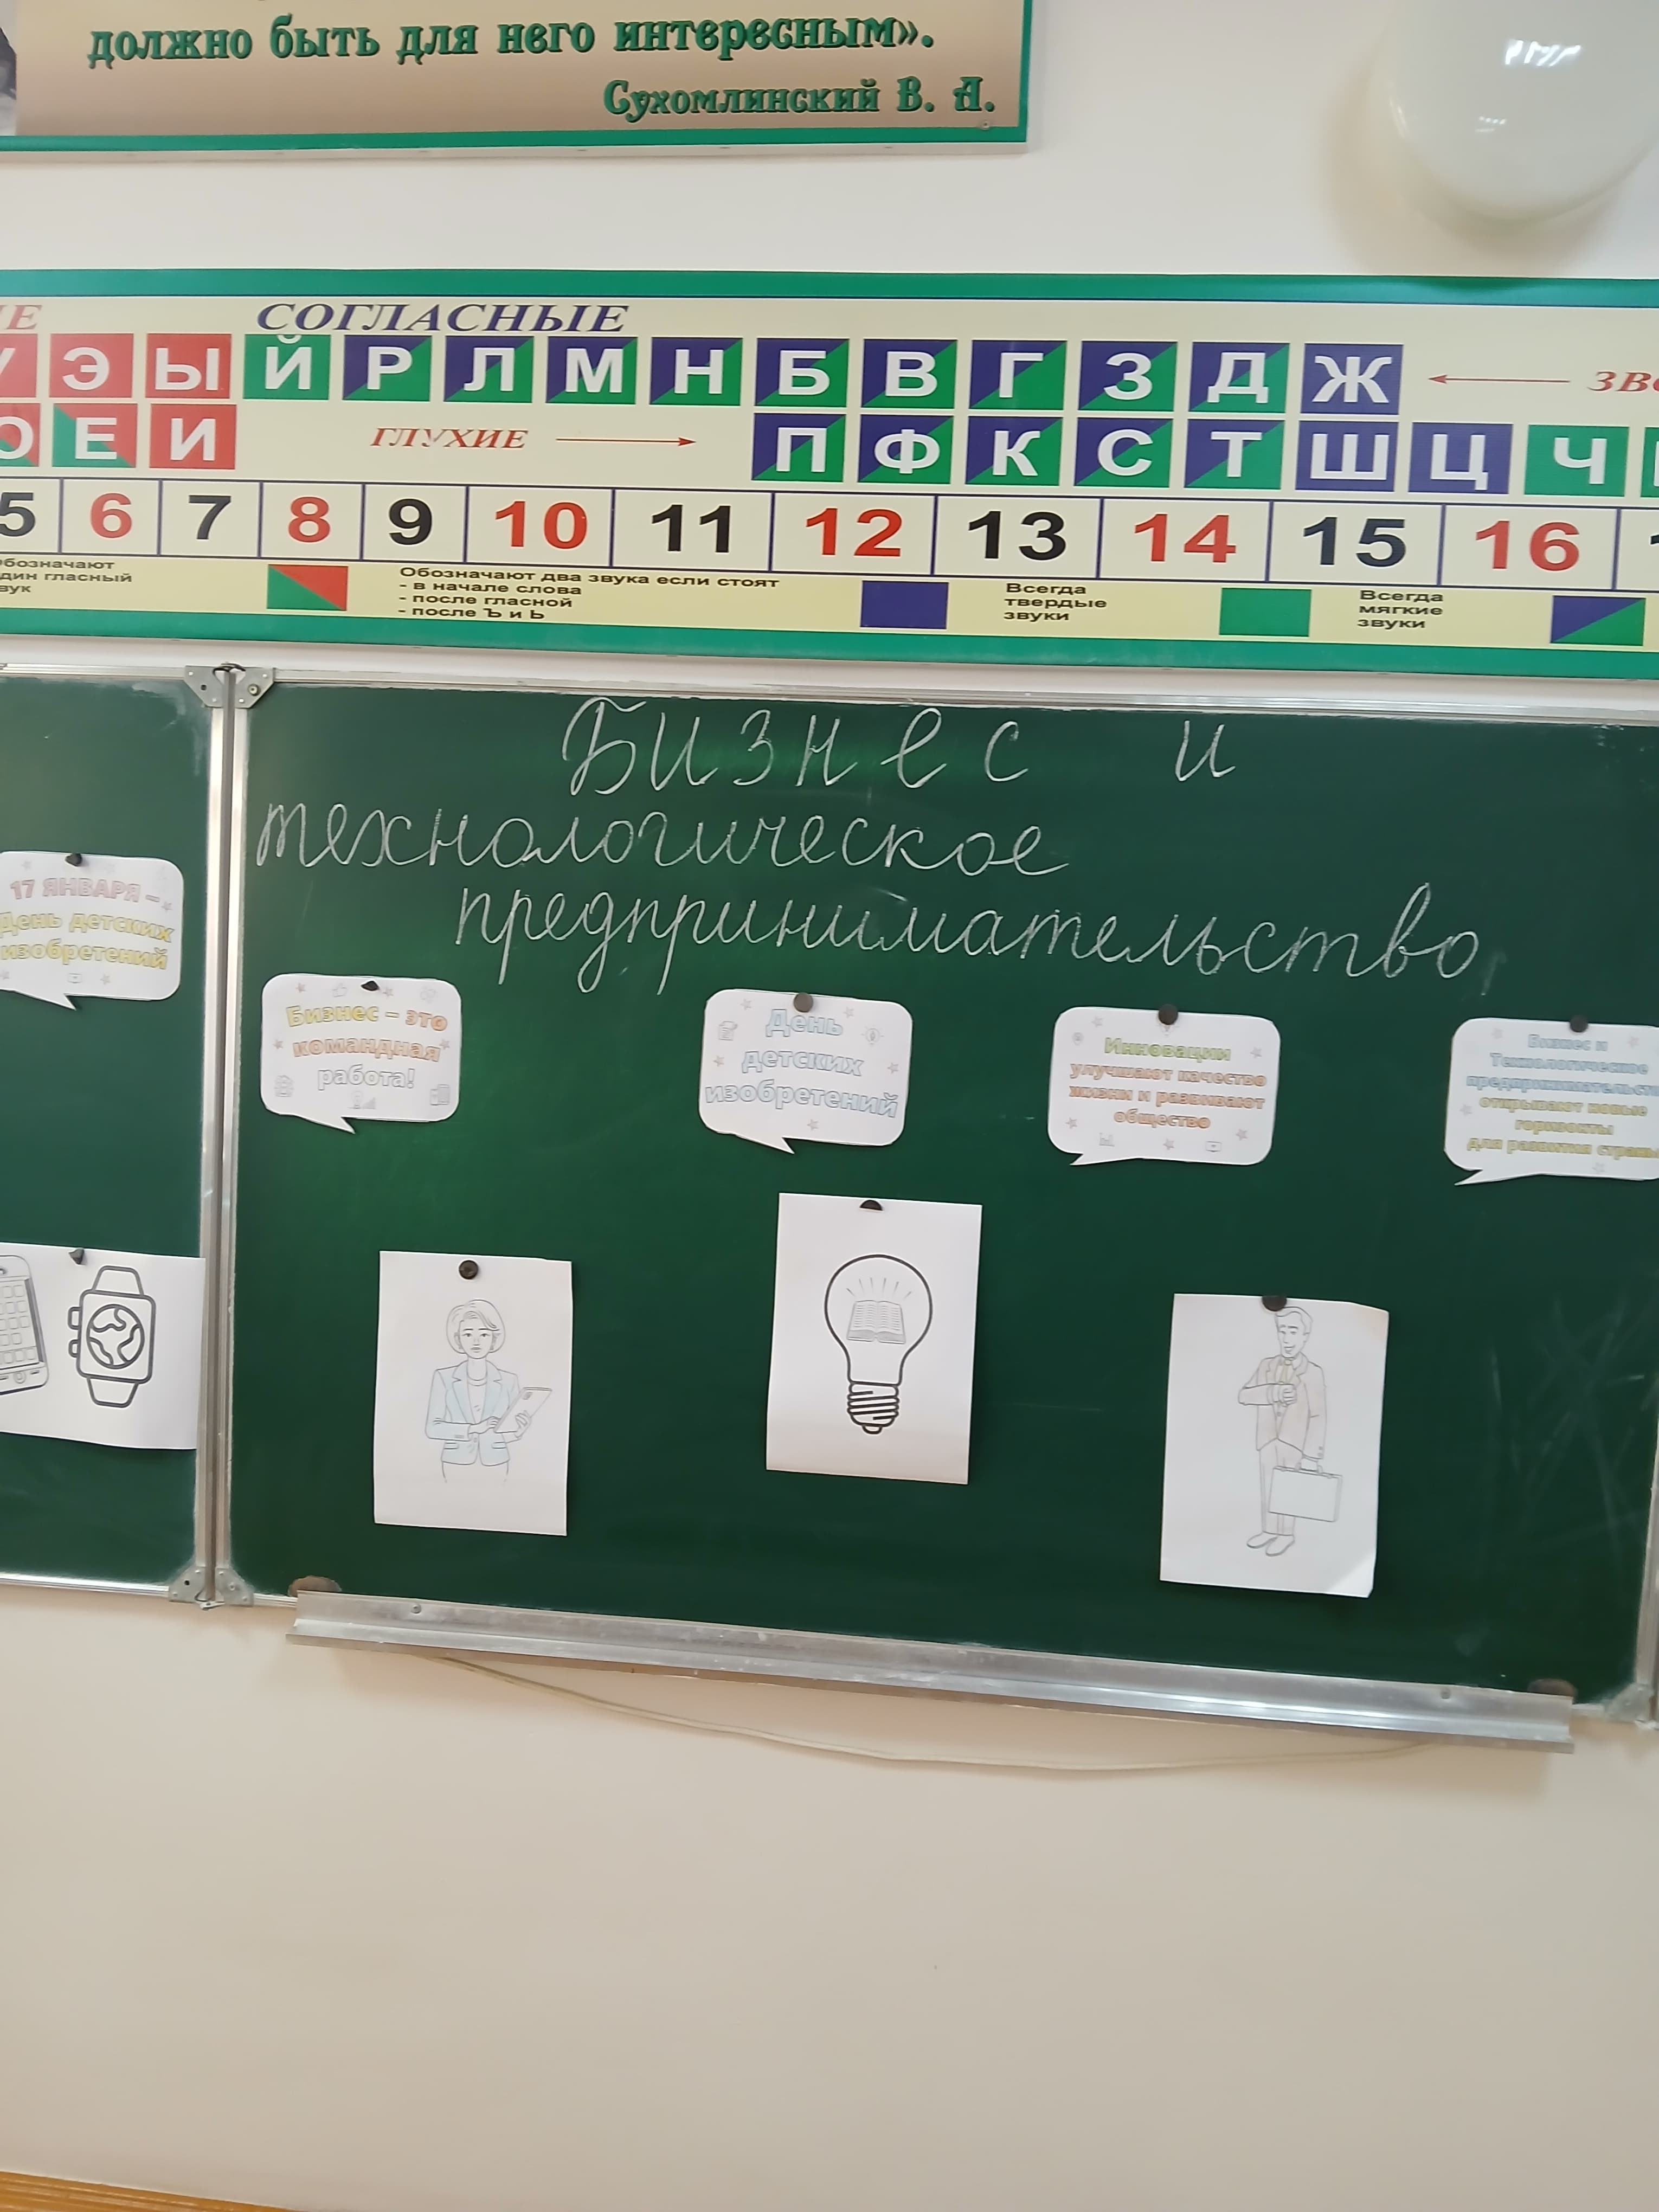 должно быть для него интересным».
Сухомлинский В. А.
СОГЛАСНЫЕ
У Э Ы Й Р Л М Н Б В Г З Д Ж
Е И ГЛУХИЕ П Ф К С Т Ш Ц Ч
5 6 7 8 9 10 11 12 13 14 15 16
Обозначают
один гласный
звук
Обозначают два звука если стоят
- в начале слова
- после гласной
- после Ъ и Ь
Всегда
твердые
звуки
Всегда
мягкие
звуки
Бизнес и
технологическое
предпринимательство
17 ЯНВАРЯ –
День детских
изобретений
Бизнес – это
командная
работа!
День
детских
изобретений
Инновации
улучшают качество
жизни и развивают
общество
Бизнес и
Технологическое
предпринимательство
открывают новые
горизонты
для развития страны